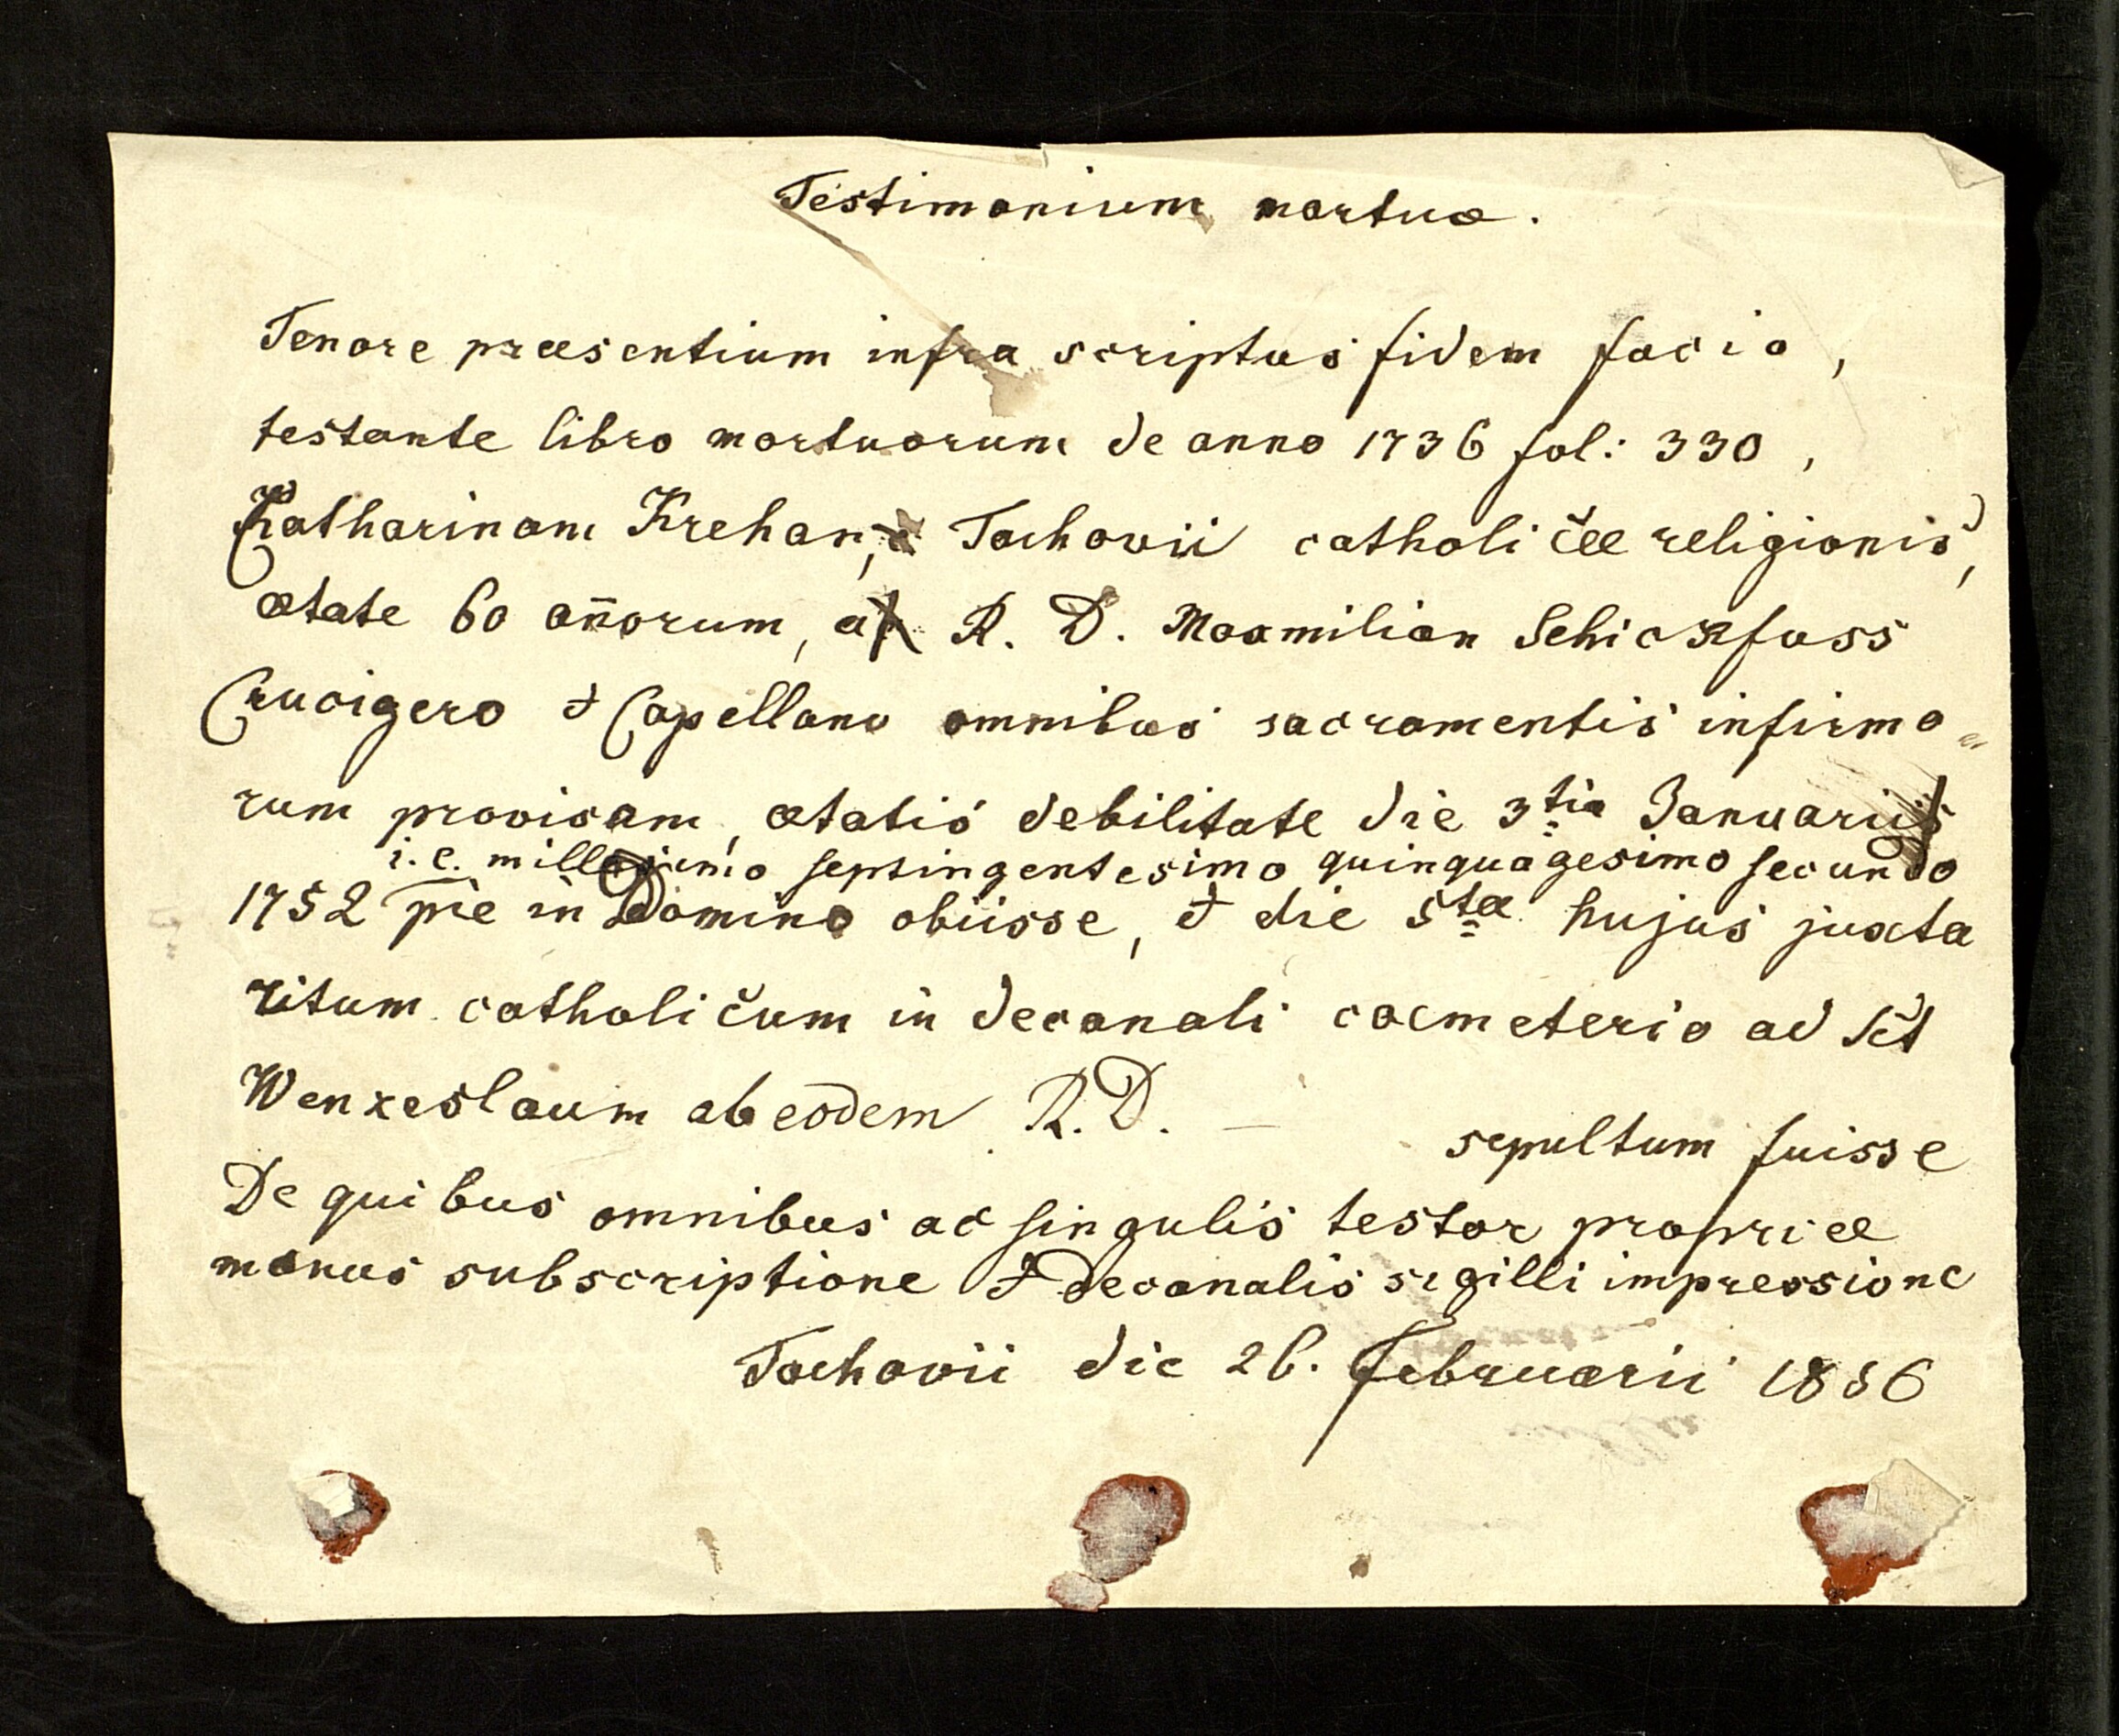 Testimonium mortuæ.
Tenore præsentium infra scriptus fidem facio,
testante libro mortuorum de anno 1736 fol: 330,
Catharinam Krehan, Tachovii catholicæ religionis,
ætate 60 an̄orum, a R. D. Maxmilian Schickfuss
Crucigero & Capellano omnibus sacramentis infirmo„
rum provisam, ætatis debilitate die 3tia Januarii
i.e. millesimo septingentesimo quinquagesimo secundo
1752 pie in Domino obiisse, & die 5ta hujus juxta
ritum catholicum in decanali coemeterio ad Sct
Wenzeslaum ab eodem R. D. — sepultum fuisse
De quibus omnibus ac singulis testor propriæ
manus subscriptione & decanalis sigilli impressione
Tachovii die 26. Februarii 1856